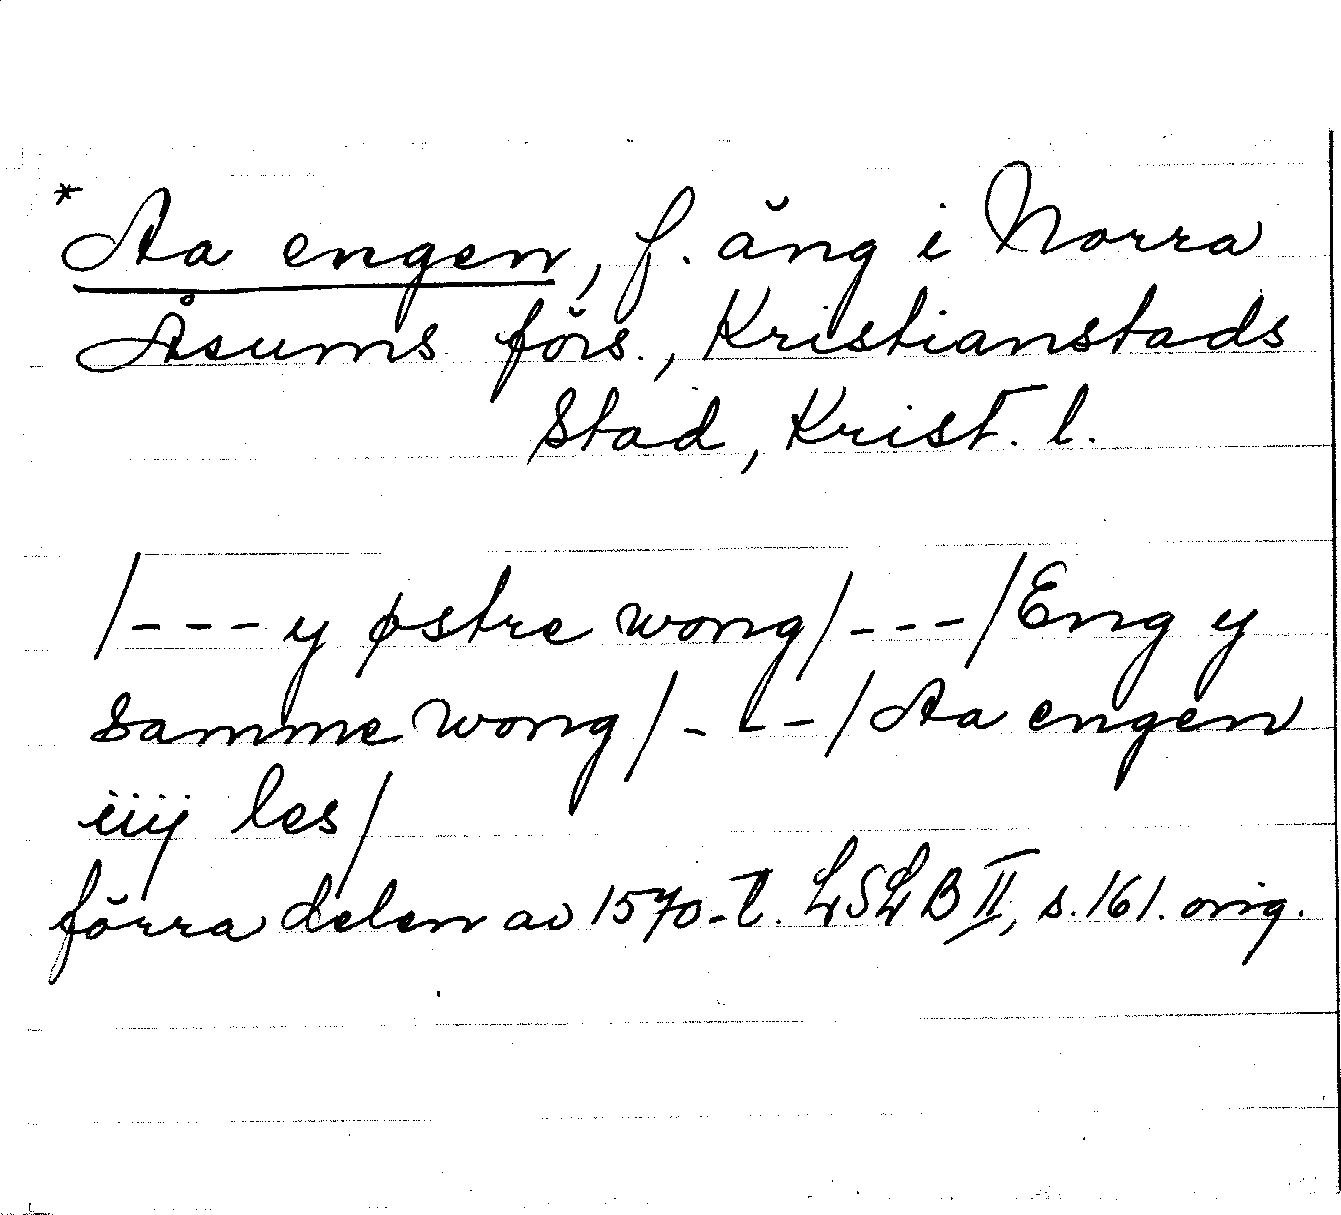 * Aa engen, f. äng i Norra
Åsums förs., Kristianstads
Stad, Krist. l.
/---y østre wong/---/Eng y
samme wong/---/Aa engen
iiij les/
förra delen av 1570-t. LSLB II, s. 161. orig.